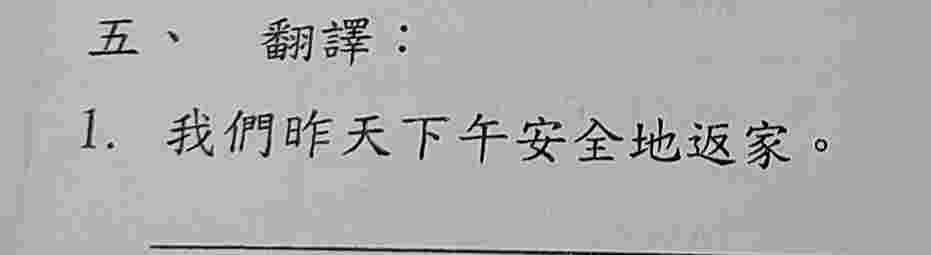 五、 翻譯：
1. 我們昨天下午安全地返家。